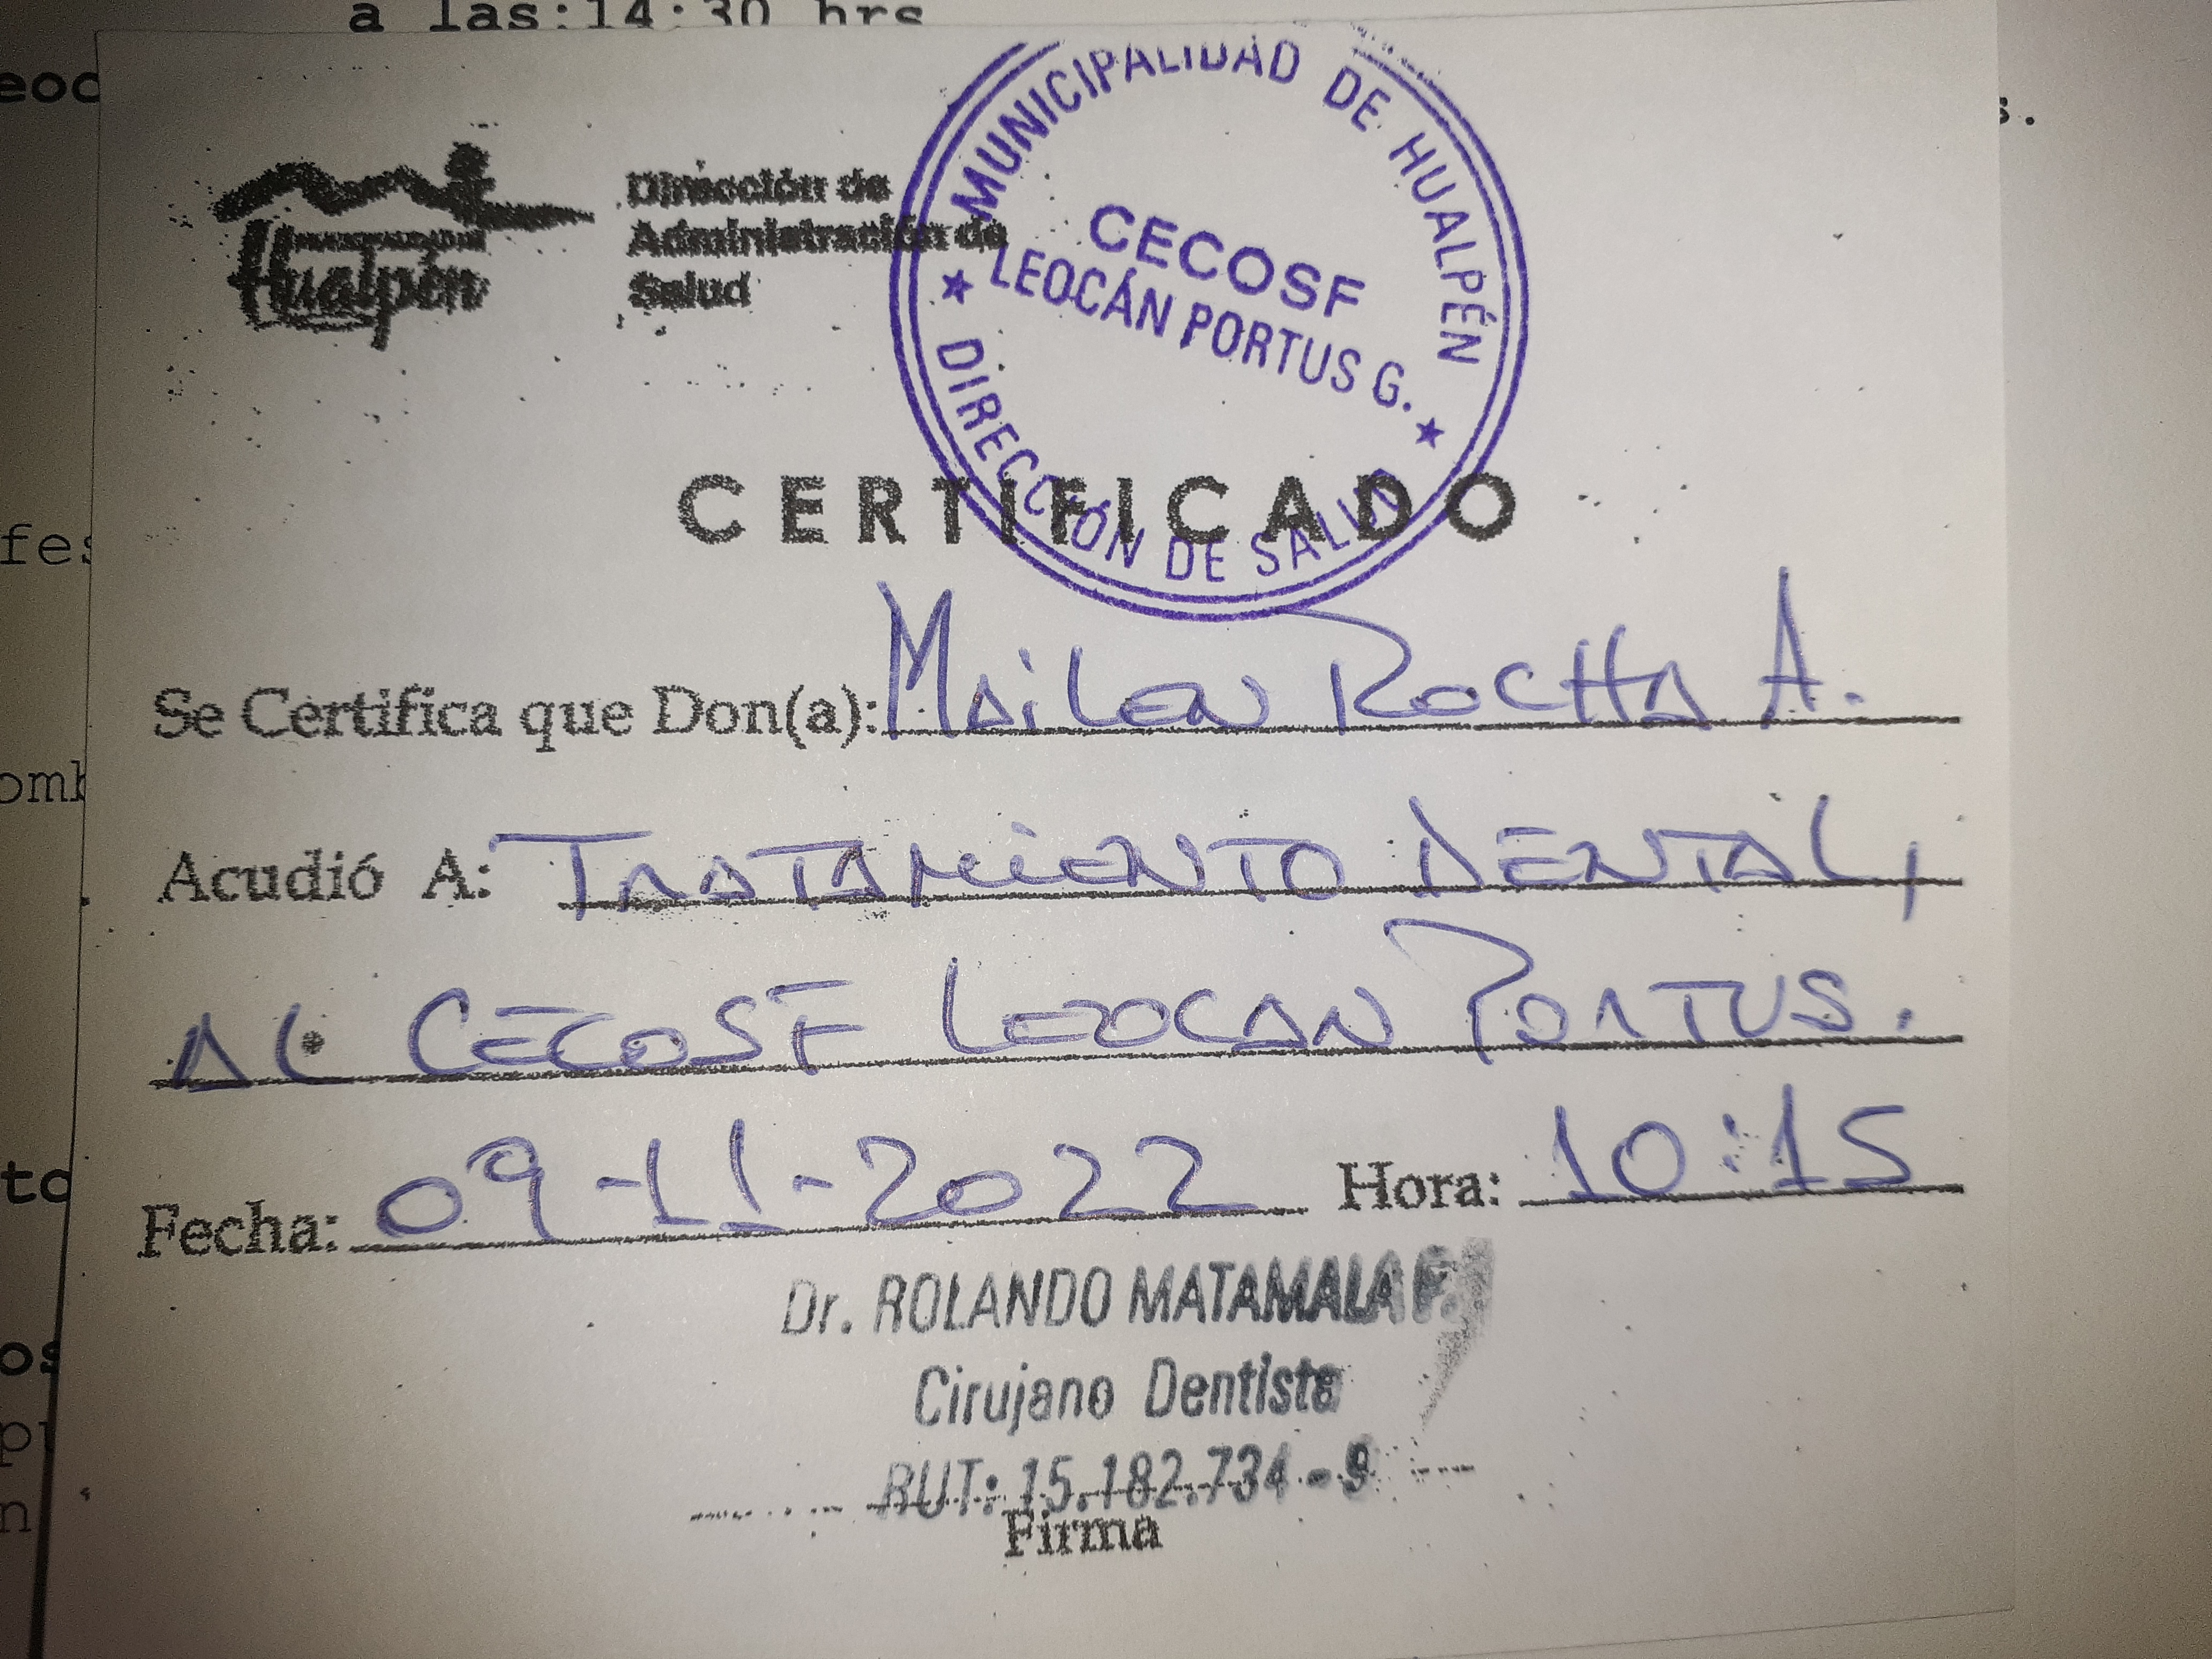 a las:14:30 hrs
Hualpén
Dirección de
Administración de
Salud
MUNICIPALIDAD DE HUALPÉN
CECOSF
LEOCÁN PORTUS G.
DIRECCIÓN DE SALUD
CERTIFICADO
Se Certifica que Don(a): MAiLEN ROCHA A.
Acudió A: TRATAMiENTO DENTAL,
AL CECOSF LEOCAN PORTUS.
Fecha: 09-11-2022 Hora: 10:15
Dr. ROLANDO MATAMALA
Cirujano Dentista
RUT: 15.182.734-9
Firma